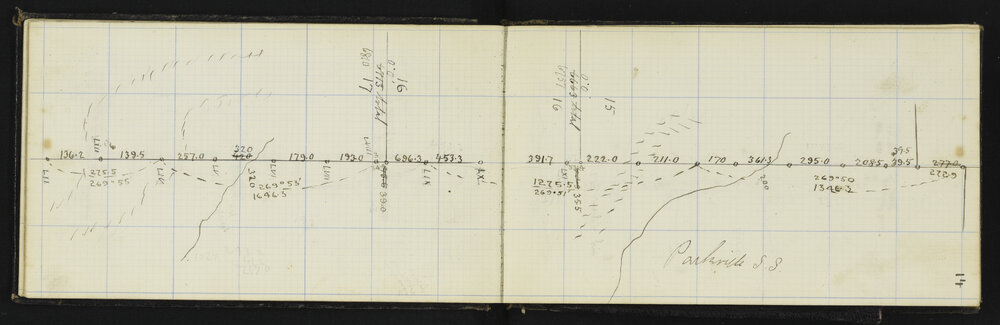 16
17
6915 total
16
15
6663 total
LIII
136.2
139.5
257.0
320
420
179.0
193.0
696.3
453.3
LII
275.5
269°55
LIV
LV
320
LVI
269°53'
1646.5
LVII
LVIII
39.0
LIX
LX
391.7
222.0
211.0
170
361.3
295.0
208.5
39.5
39.5
277.0
272.9
1275.5
269°51'
LXI
355
200
269°50
1346.2
Parkville S.S.